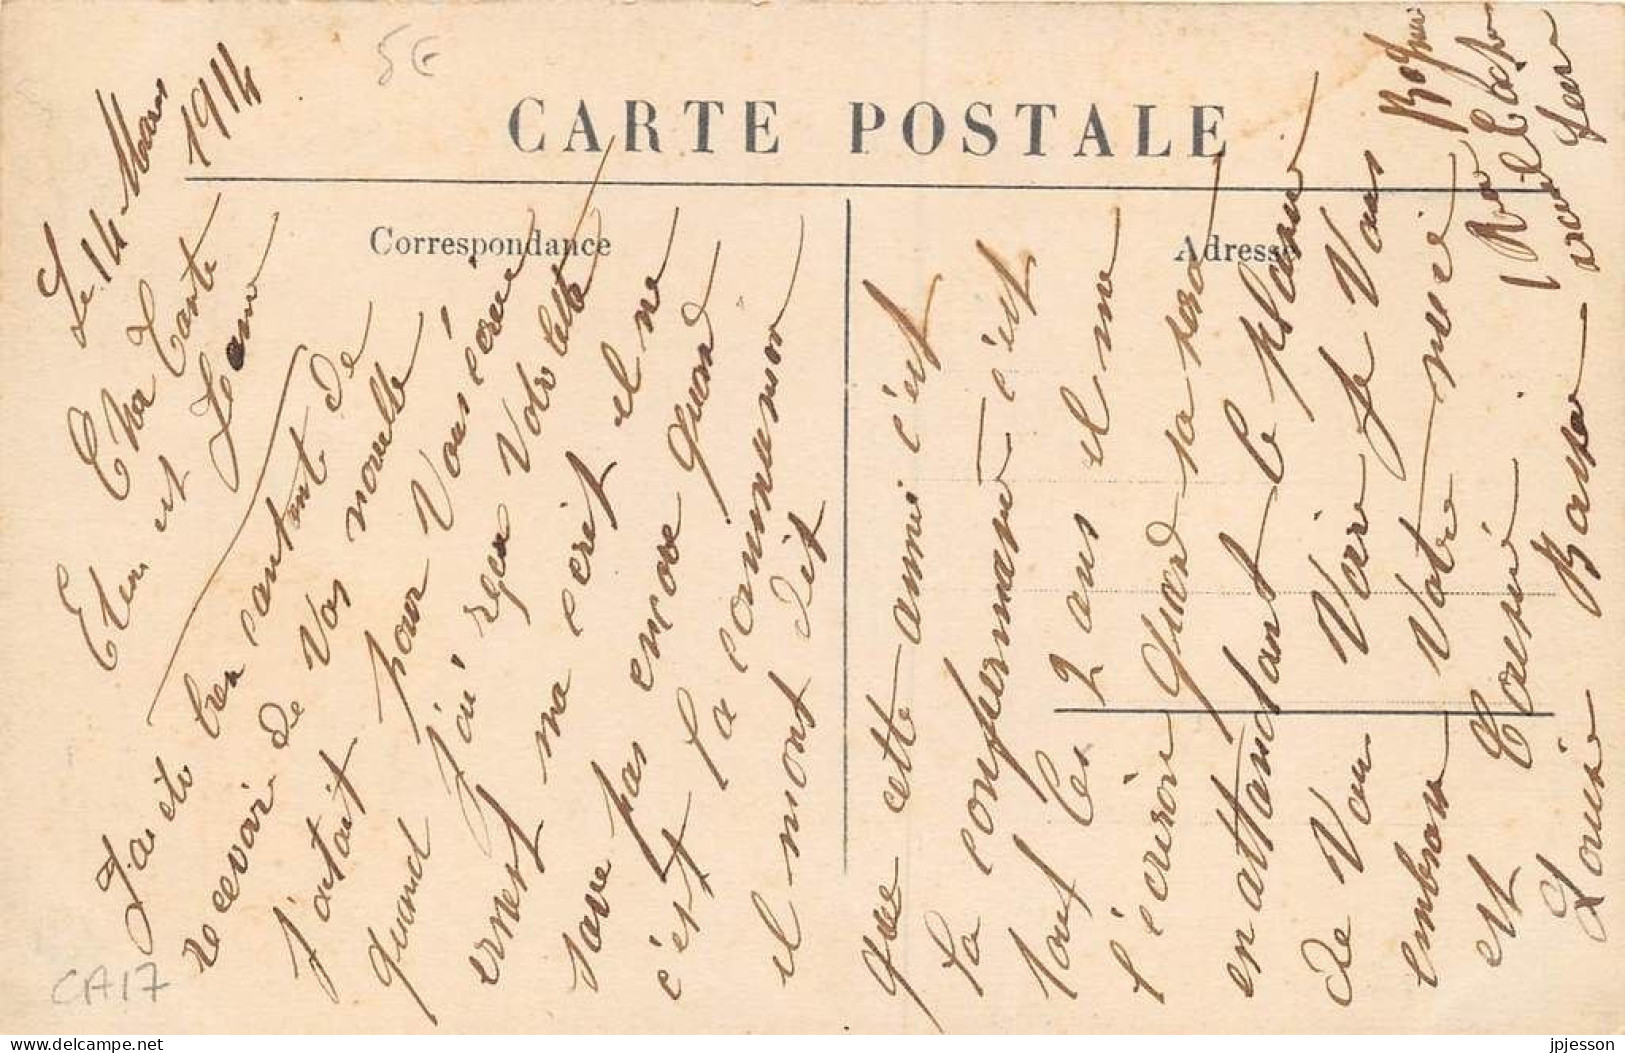 5€
CARTE POSTALE
Correspondance
Adresse
Le 14 Mars
1914
Cher Tante
et
Jeanne
J'ai ete bien contant de
recevoir de Vos nouvelle
J'aitait pour Vous écrire
quand j'ai reçu Votre lettre
ernest ma ecrit il ne
save pas encore quand
c'est la communion
il mont dit
que cette anné c'est
la confirmation c'est
tout les 2 ans il me
l'ecriron quand sa sera
en attandant le plaisir
de Vou Voire je Vous
embrase Votre
est Cousine
Louise
CA17
jpjesson
© www.delcampe.net